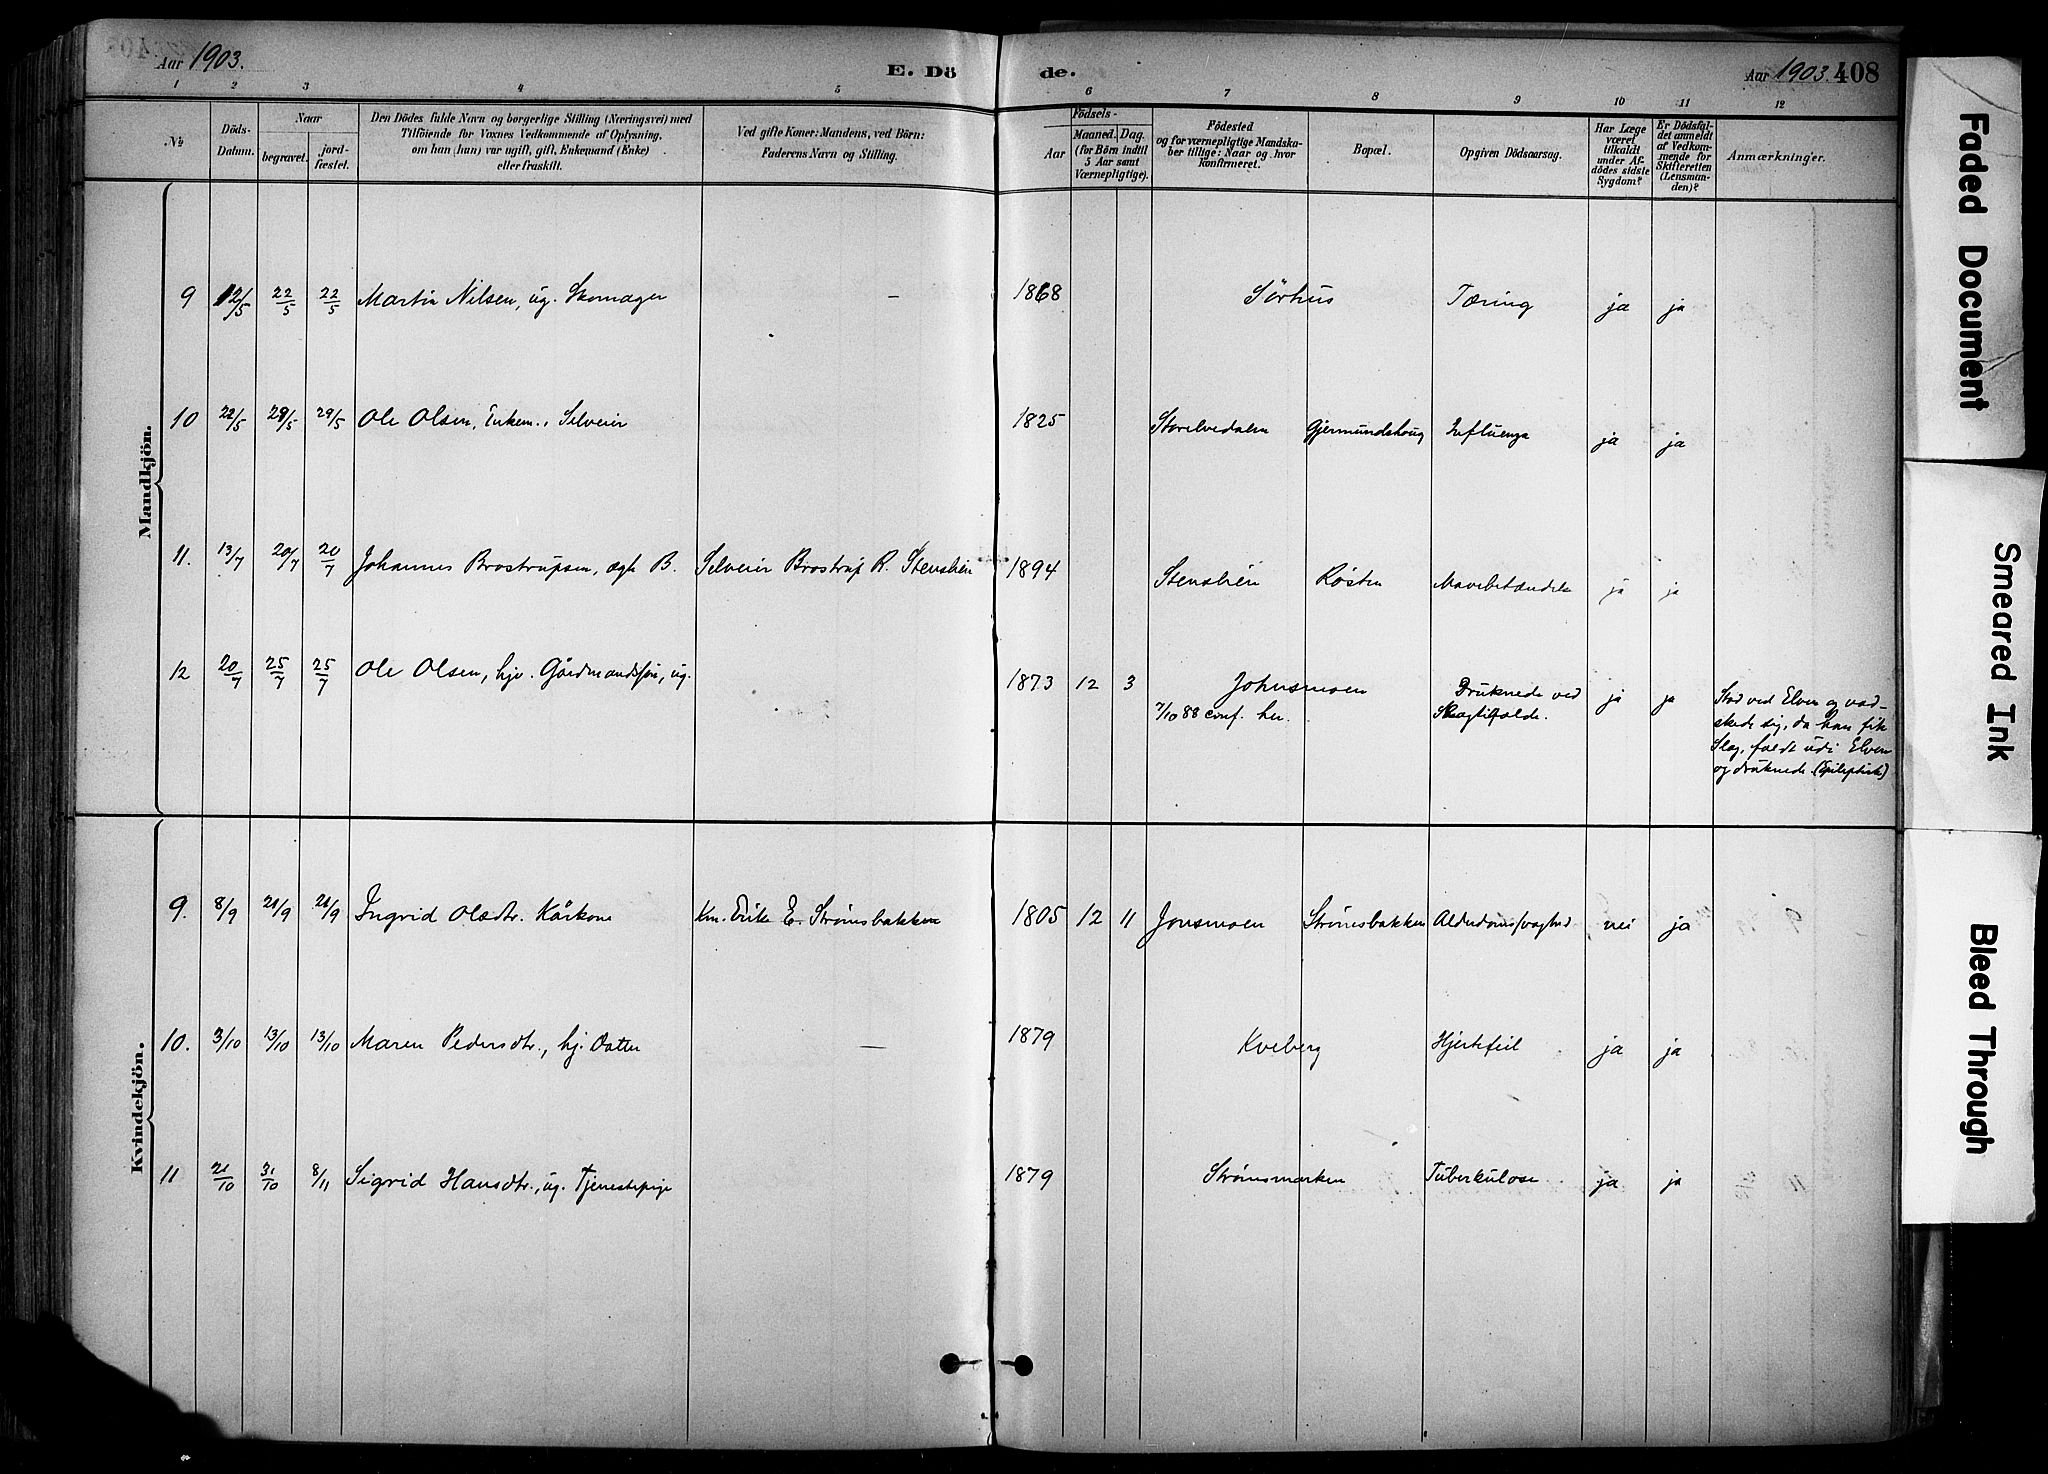 Aar 1903.
E. Döde.
Aar 1903. 408
1 2 3 4 5 6 7 8 9 10 11 12
No
Döds-Datum.
Naar
begravet.
jord-fæstet.
Den Dödes fulde Navn og borgerlige Stilling (Næringsvei) med
Tilföiende for Voxnes Vedkommende af Oplysning,
om han (hun) var ugift, gift, Enkemand (Enke)
eller fraskilt.
Ved gifte Koner: Mandens, ved Börn:
Faderens Navn og Stilling.
Födsels-
Aar
Maaned. Dag.
(for Börn indtil
5 Aar samt
Værnepligtige).
Födested
og for værnepligtige Mandska-
ber tillige: Naar og hvor
konfirmeret.
Bopæl.
Opgiven Dödsaarsag.
Har Læge
været
tilkaldt
under Af-
dödes sidste
Sygdom?
Er Dödsfal-
det anmeldt
af Vedkom-
mende for
Skifteretten
(Lensman-
den)?
Anmærkninger.
Mandkjön.
9 12/5 22/5 22/5 Martin Nilsen, ug. Skomager — 1868 Sørhus Tæring ja ja
10 22/5 29/5 29/5 Ole Olsen, Enkem., Selveier 1825 Storelvedalen Gjermundshoug Influenza ja ja
11. 13/7 20/7 20/7 Johannes Brostrupsen, ægte B. Selveier Brostrup R. Stenslien 1894 Stenslien Røsten Mavebetændelse ja ja
12 20/7 25/7 25/7 Ole Olsen, hjv. Gårdmandssøn, ug. 1873 12 3 Johnsmoen Druknede ved ja ja Stod ved Elven og vad-
7/10 88 conf. her. Slagtilfælde. skede sig, da han fik
Slag, faldt udi Elven
og druknede. (Epileptisk)
Kvindekjön.
9. 8/9 21/9 21/9 Ingrid Olsdtr. Kårkone Km. Eriks E. Strømsbakken 1805 12 11 Jonsmoen Strømsbakken Alderdomssvaghed nei ja
10. 3/10 13/10 13/10 Maren Pedersdtr., hj. Datter — 1879 Kveberg Hjertefeil ja ja
11 21/10 31/10 8/11 Sigrid Hansdtr., ug. Tjenestepige 1879 Strømsmarken Tuberkulose ja ja
Faded Document
Smeared Ink
Bleed Through